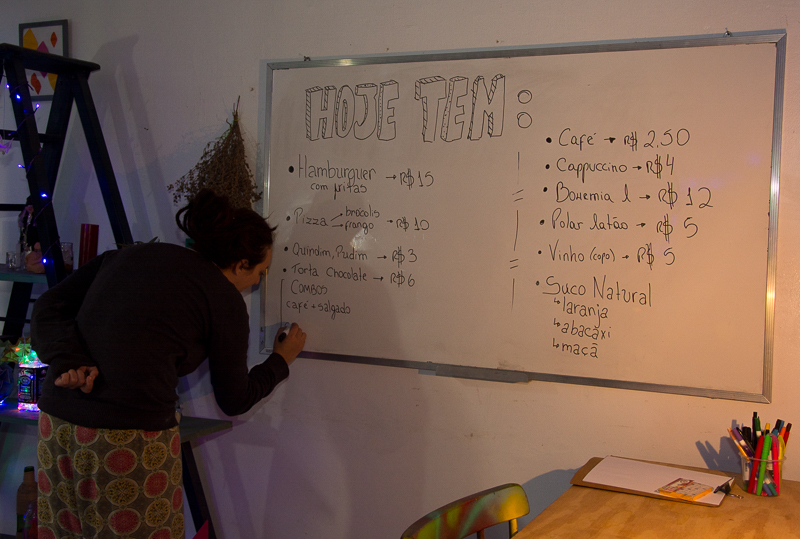 HOJE TEM:
• Hamburguer → R$ 15
com fritas
• Pizza → brócolis → R$ 10
→ frango
• Quindim, Pudim → R$ 3
• Torta Chocolate → R$ 6
COMBOS
café + salgado
• Café → R$ 2,50
• Cappuccino → R$ 4
• Bohemia l → R$ 12
• Polar latão → R$ 5
• Vinho (copo) → R$ 5
• Suco Natural
↳ laranja
↳ abacaxi
↳ maçã